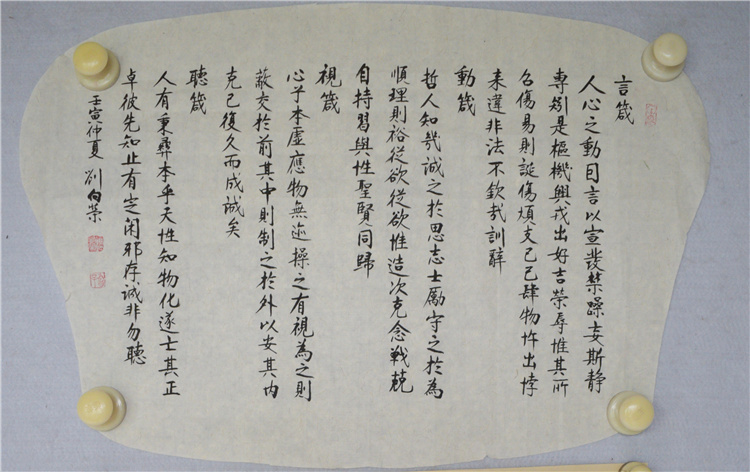 言箴
人心之動因言以宣發禁躁妄斯静
專矧是樞機興戎出好吉榮辱惟其所
召傷易則誕傷煩支己己肆物忤出悖
来違非法不欽哉訓辭
動箴
哲人知幾誠之於思志士勵守之於為
順理則裕從欲從欲惟造次克念戰兢
自持習與性聖賢同歸
視箴
心乎本虛應物無迹操之有視為之則
蔽交於前其中則制之於外以安其内
克己復久而成誠矣
聽箴
人有秉彝本乎天性知物化遂士其正
卓彼先知止有定閑邪存誠非勿聽
壬寅仲夏 刘向荣